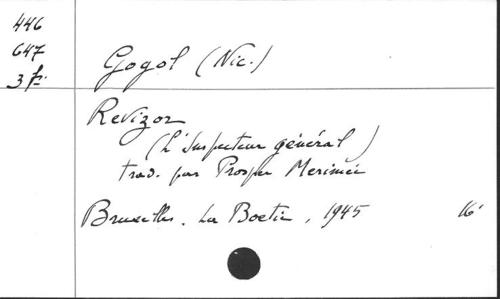 446
647
3 f.
Gogol (Nic.)
Revizor
(L'Inspecteur général)
trad. par Prosper Merimée
Bruxelles. La Boetie, 1945 16°